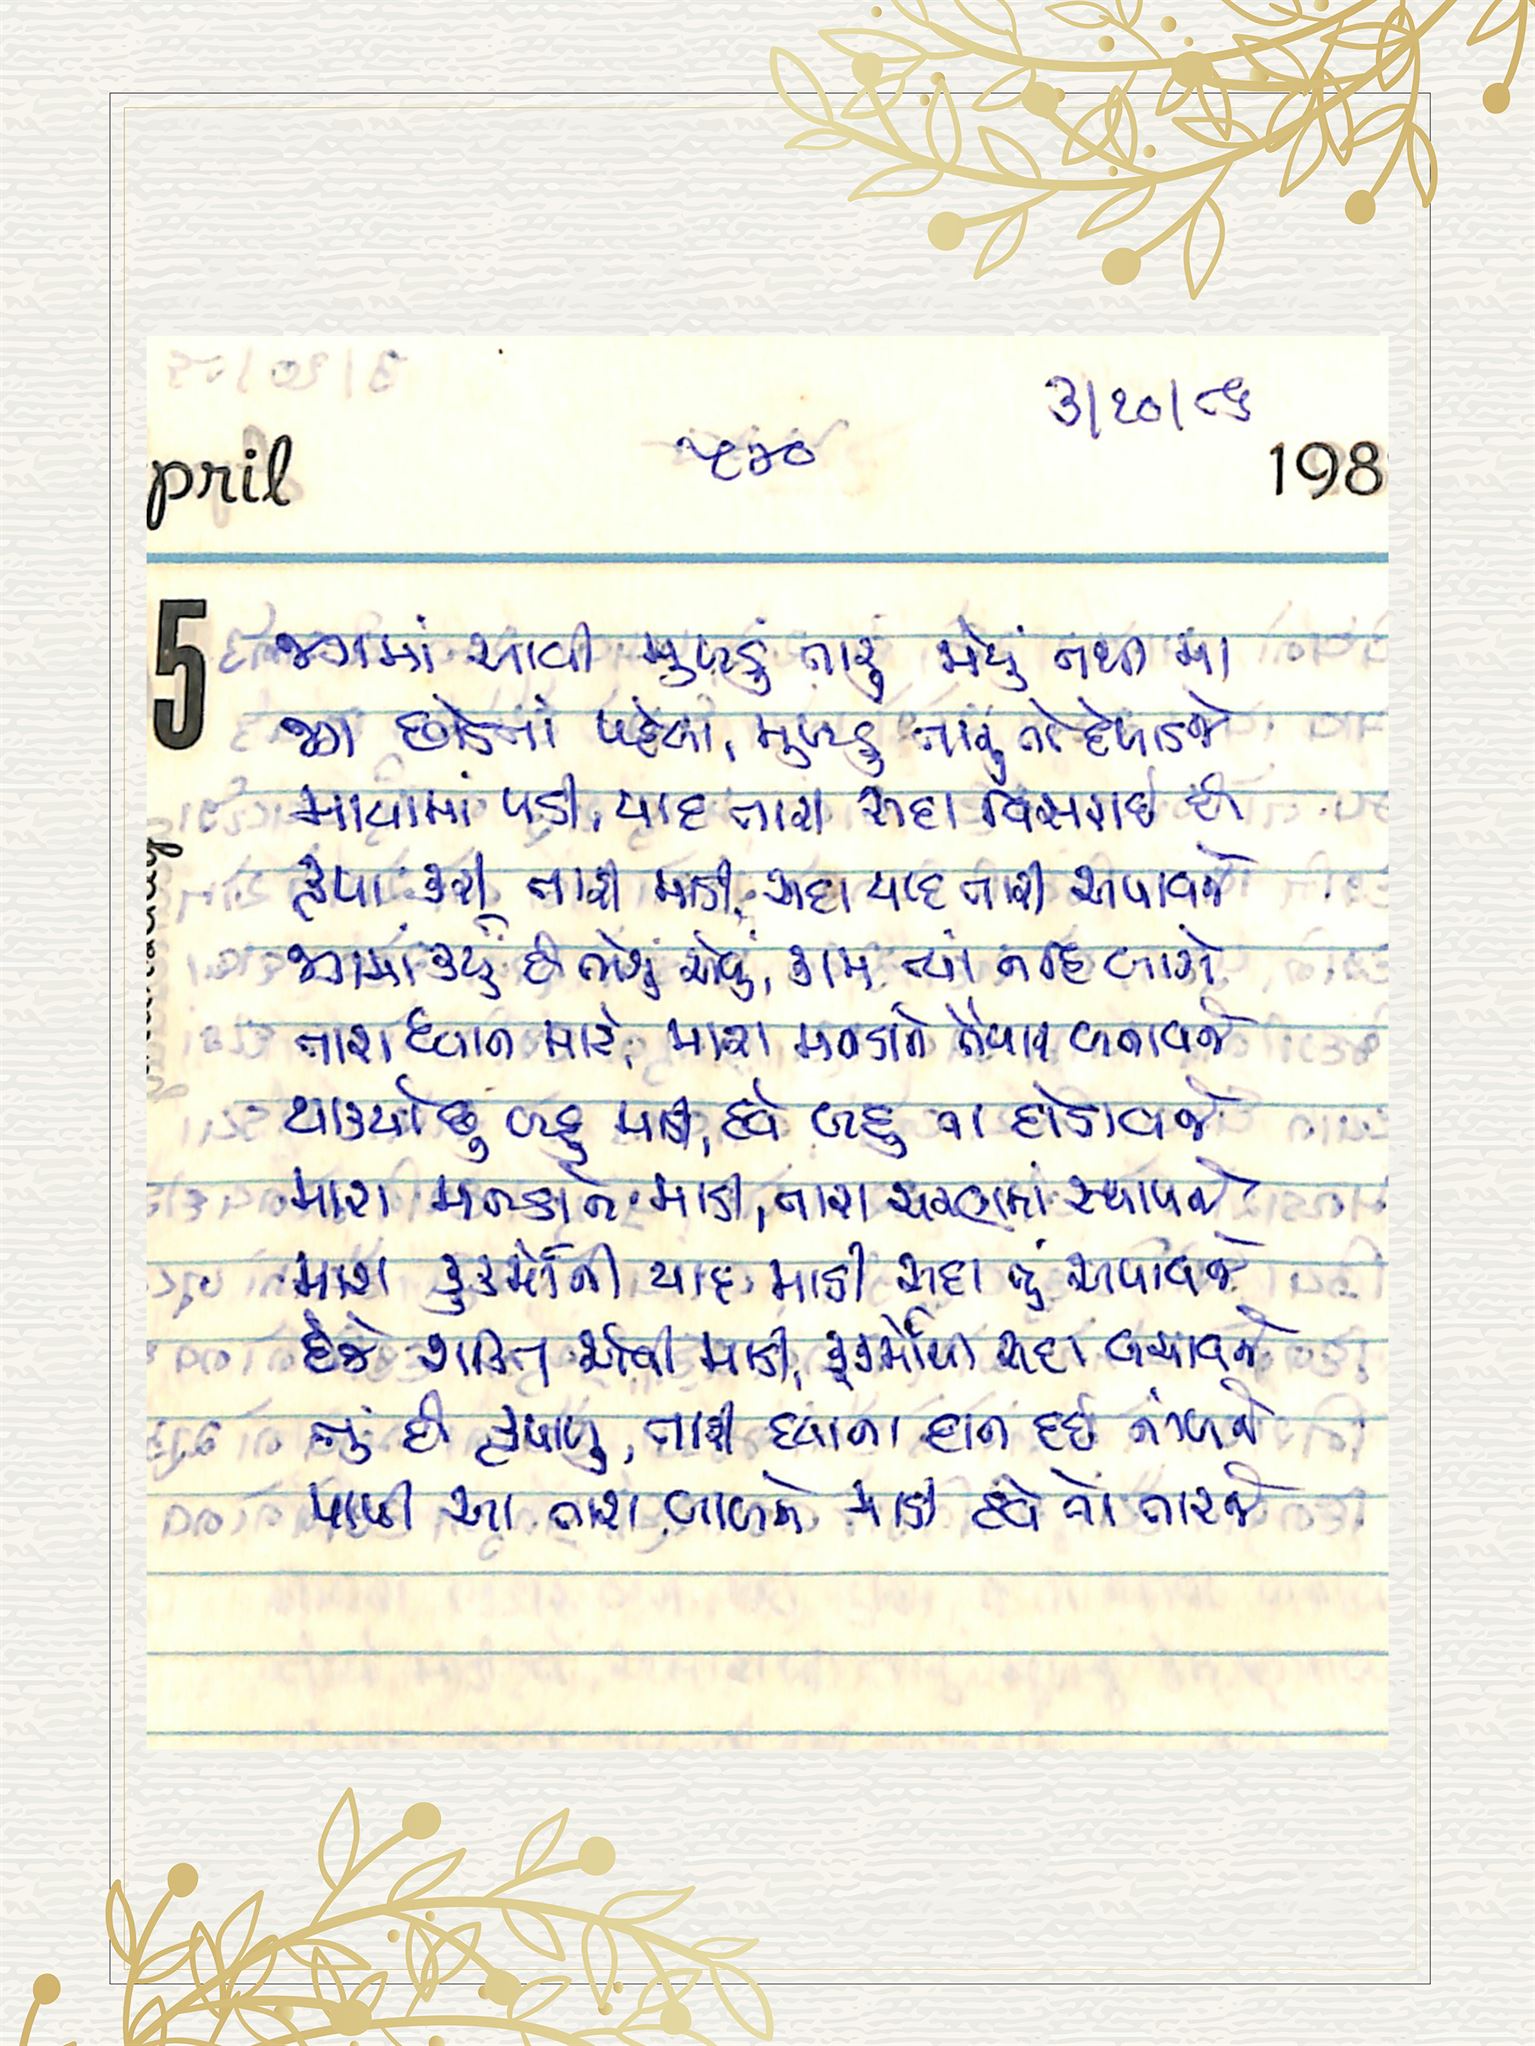 ૩/૧૦/૮૫
pril
૫૪૦
198
5
જગમાં આવી મુખડું તારું જોયું નથી મા
જગ છોડતાં પહેલા, મુખડું તારું તો દેખાડજે
માયામાં પડી, યાદ તારી સદા વિસરાઈ છે
કૃપા કરી તારી માડી, સદા યાદ તારી અપાવજે
જગમાં કર્યું છે ભેગું એવું, કામ ત્યાં નહિ લાગે
તારા ધ્યાન માટે, મારા મનડાંને તૈયાર બનાવજે
થાક્યો છું બહુ માડી, હવે બહુ ના દોડાવજે
મારા મનડાંને માડી, તારા ચરણમાં સ્થાપજે
મારા કુકર્મોની યાદ માડી સદા તું અપાવજે
દેજે શક્તિ એવી માડી, કુકર્મોથી સદા બચાવજે
તું છે કૃપાળુ, તારી દયાના દાન દઈ
પાપી આ તારા બાળને માડી હવે તો તારજે